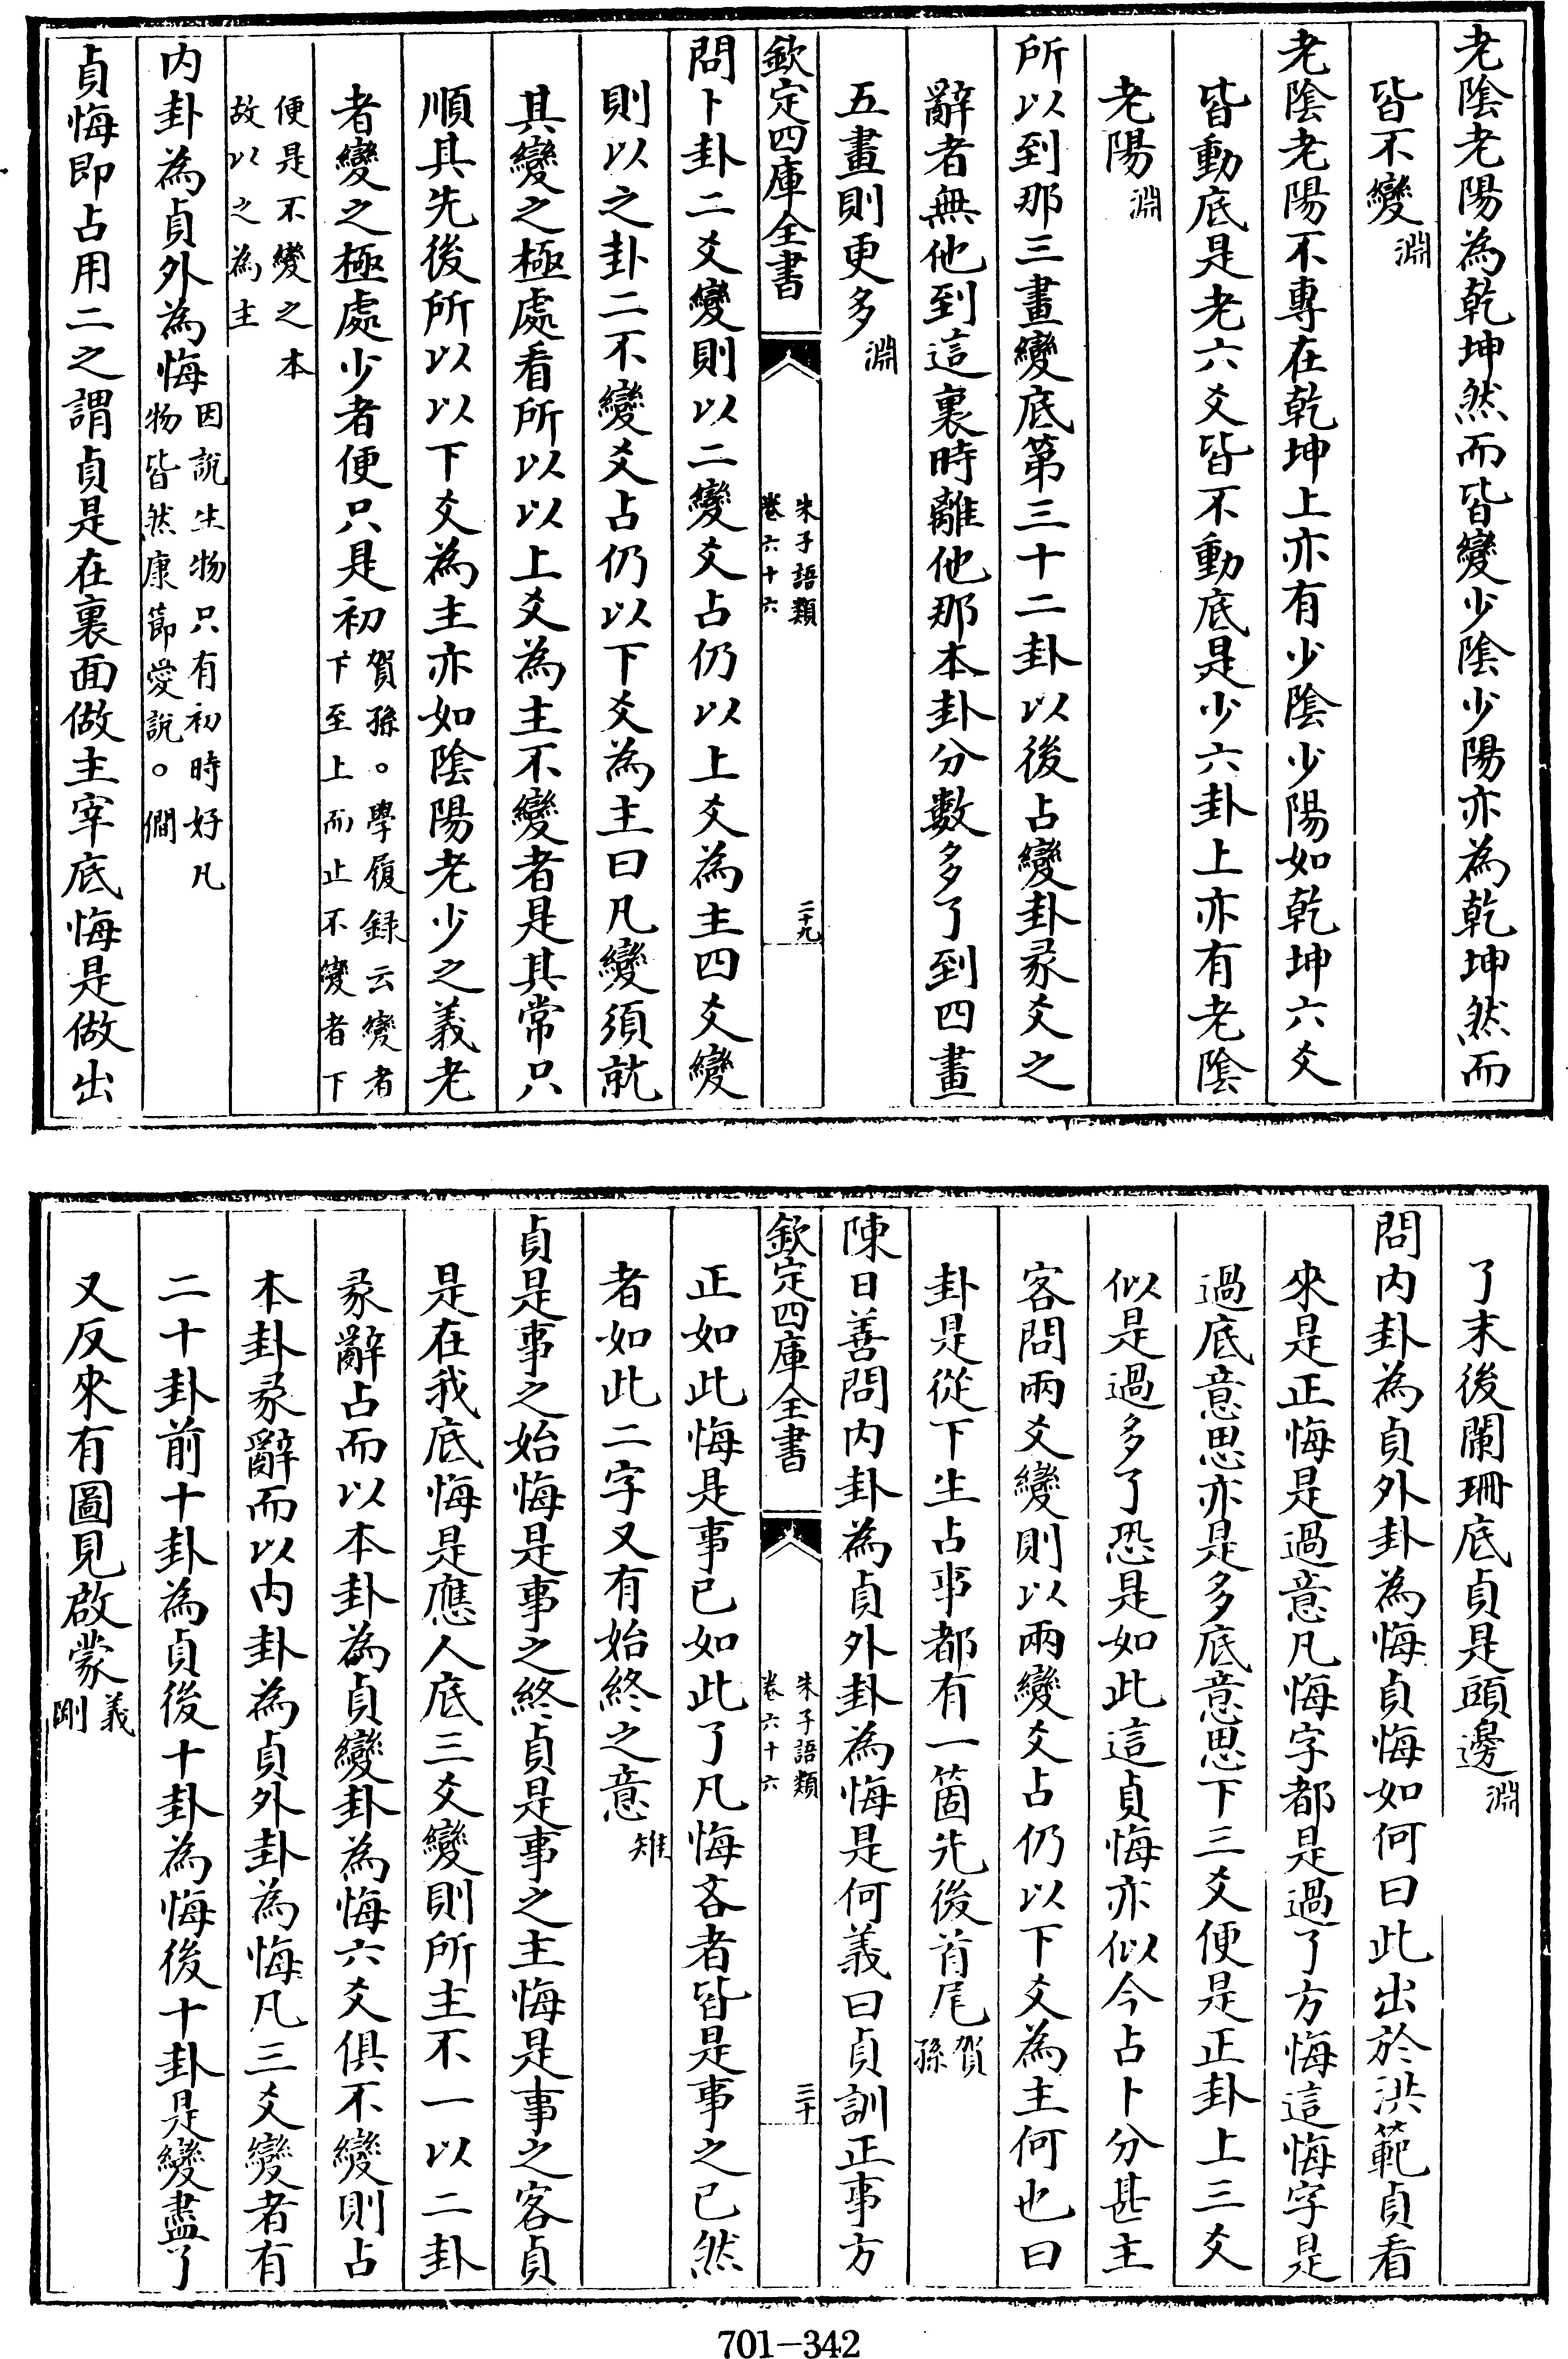 老陰老陽為乾坤然而皆變少陰少陽亦為乾坤然而
皆不變淵
老陰老陽不專在乾坤上亦有少陰少陽如乾坤六爻
皆動底是老六爻皆不動底是少六卦上亦有老陰
老陽淵
所以到那三畫變底第三十二卦以後占變卦彖爻之
辭者無他到這裏時離他那本卦分數多了到四畫
五畫則更多淵
欽定四庫全書
朱子語類
卷六十六
二十九
問卜卦二爻變則以二變爻占仍以上爻為主四爻變
則以之卦二不變爻占仍以下爻為主曰凡變須就
其變之極處看所以以上爻為主不變者是其常只
順其先後所以以下爻為主亦如陰陽老少之義老
者變之極處少者便只是初賀孫。學履録云變者
下至上而止不變者下
便是不變之本
故以之為主
内卦為貞外為悔因說生物只有初時好凡
物皆然康節愛說。僩
貞悔即占用二之謂貞是在裏面做主宰底悔是做出
了末後闌珊底貞是頭邊淵
問内卦為貞外卦為悔貞悔如何曰此出於洪範貞看
來是正悔是過意凡悔字都是過了方悔這悔字是
過底意思亦是多底意思下三爻便是正卦上三爻
似是過多了恐是如此這貞悔亦似今占卜分甚主
客問兩爻變則以兩變爻占仍以下爻為主何也曰
卦是從下生占事都有一箇先後首尾賀
孫
陳日善問内卦為貞外卦為悔是何義曰貞訓正事方
欽定四庫全書
朱子語類
卷六十六
三十
正如此悔是事已如此了凡悔吝者皆是事之已然
者如此二字又有始終之意雉
貞是事之始悔是事之終貞是事之主悔是事之客貞
是在我底悔是應人底三爻變則所主不一以二卦
彖辭占而以本卦為貞變卦為悔六爻俱不變則占
本卦彖辭而以内卦為貞外卦為悔凡三爻變者有
二十卦前十卦為貞後十卦為悔後十卦是變盡了
又反來有圖見啟蒙義
剛
701-342